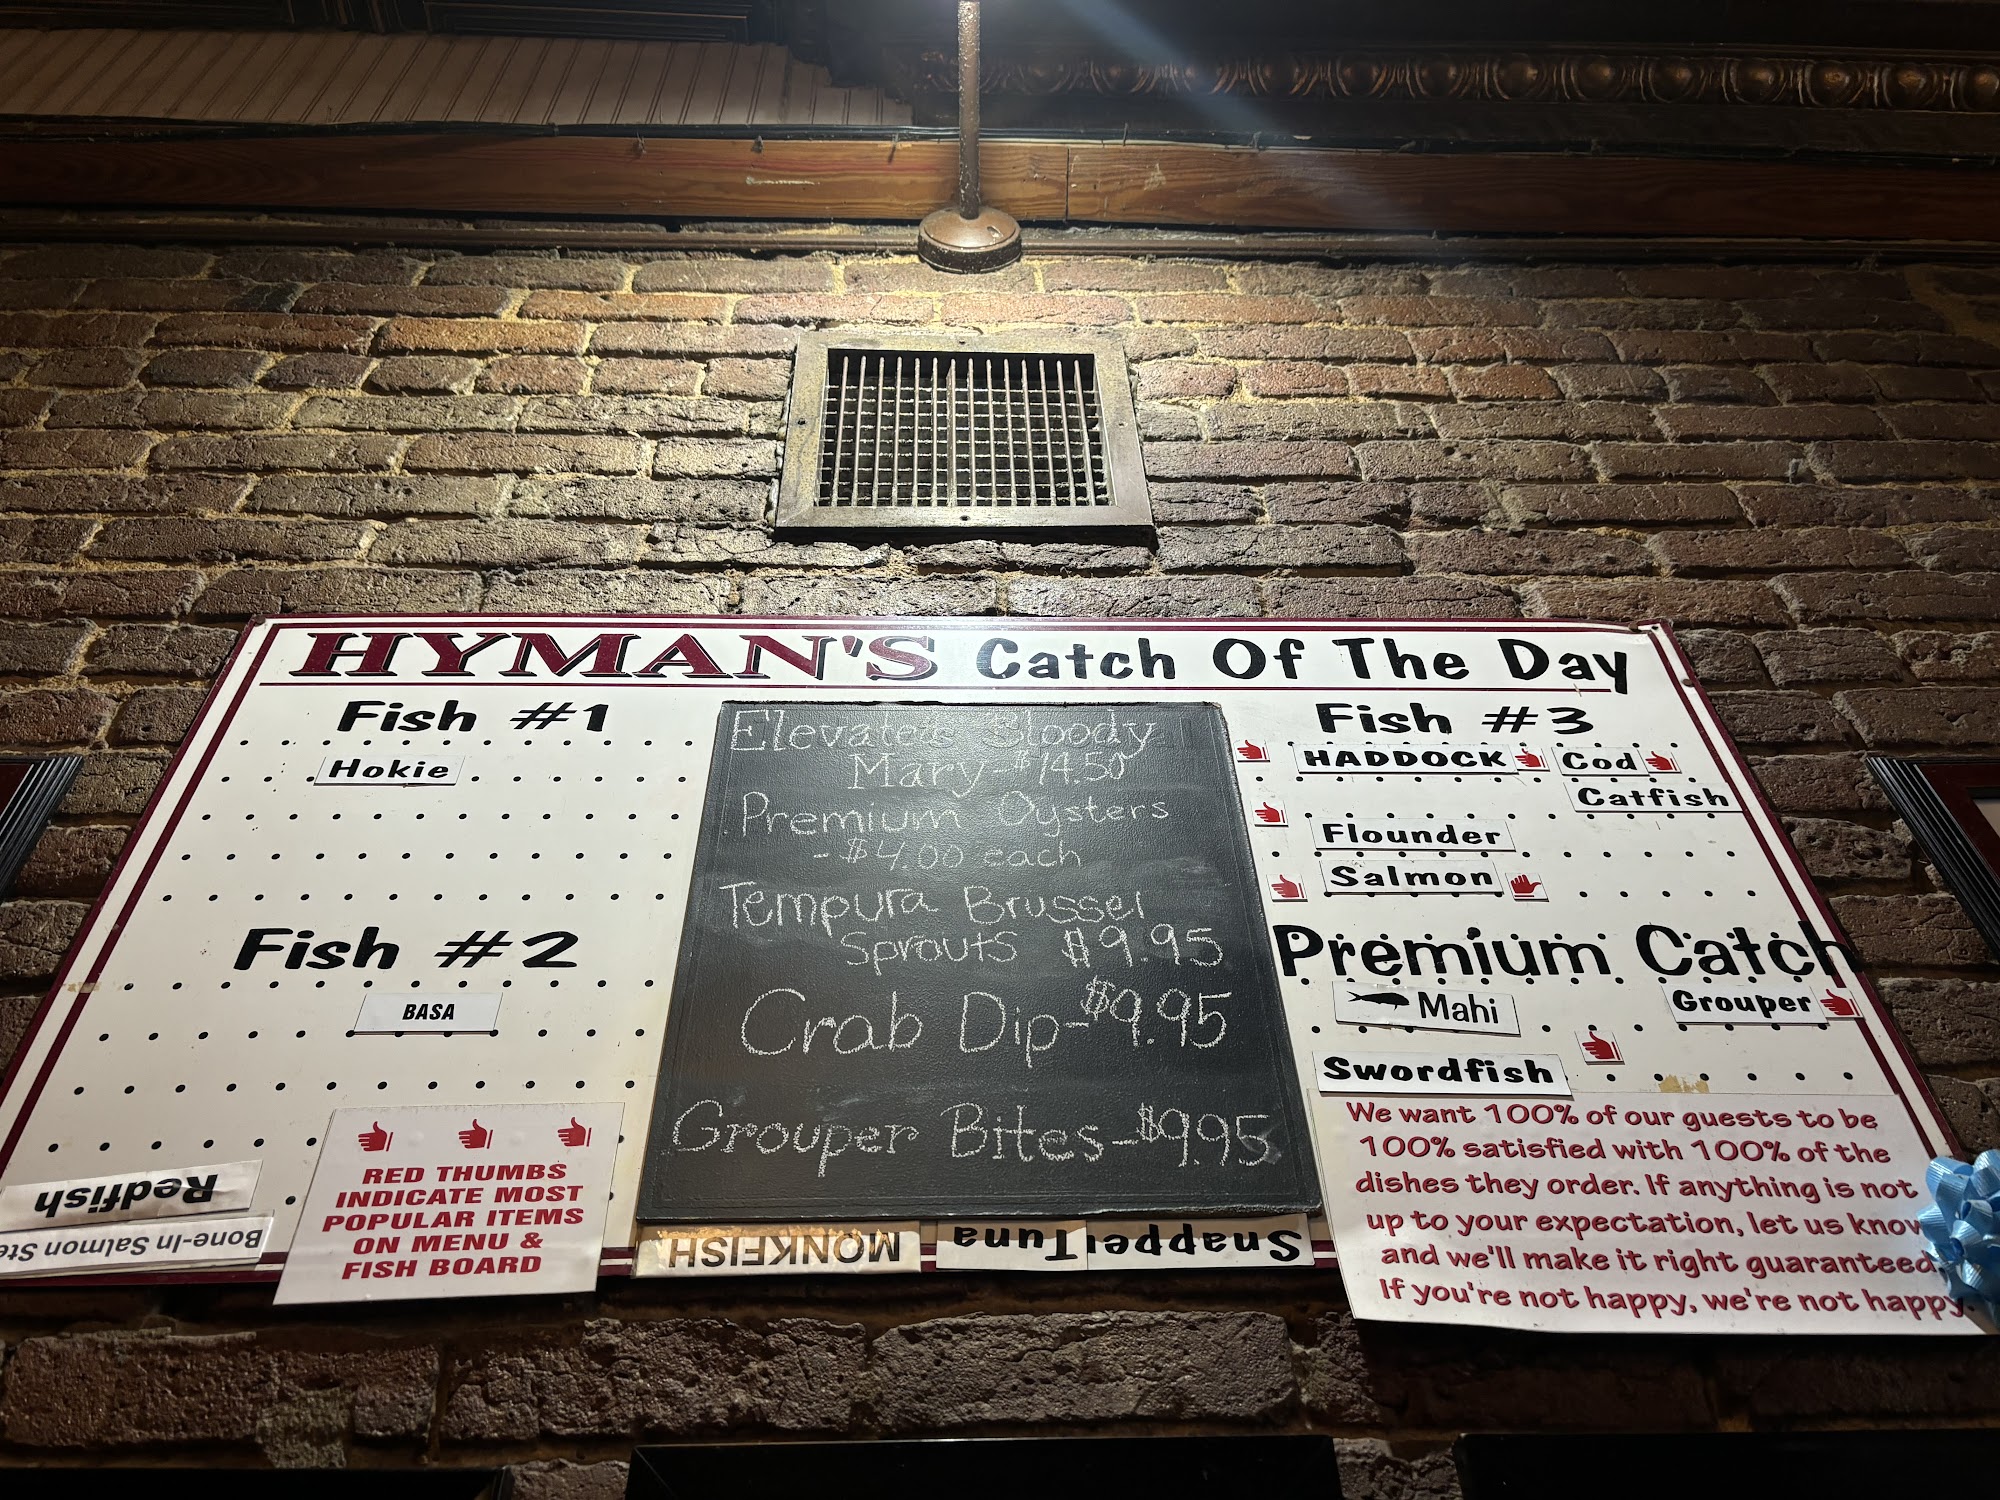 HYMAN'S Catch Of The Day
Fish #1
Hokie
Fish #2
BASA
RED THUMBS
INDICATE MOST
POPULAR ITEMS
ON MENU &
FISH BOARD
Redfish
Bone-In Salmon Ste
Elevated Bloody
Mary-$14.50
Premium Oysters
-$4.00 each
Tempura Brussel
Sprouts $9.95
Crab Dip-$9.95
Grouper Bites-$9.95
MONKFISH
Tuna
Snapper
Fish #3
HADDOCK
Cod
Catfish
Flounder
Salmon
Premium Catch
Mahi
Grouper
Swordfish
We want 100% of our guests to be
100% satisfied with 100% of the
dishes they order. If anything is not
up to your expectation, let us know
and we'll make it right guaranteed.
If you're not happy, we're not happy.